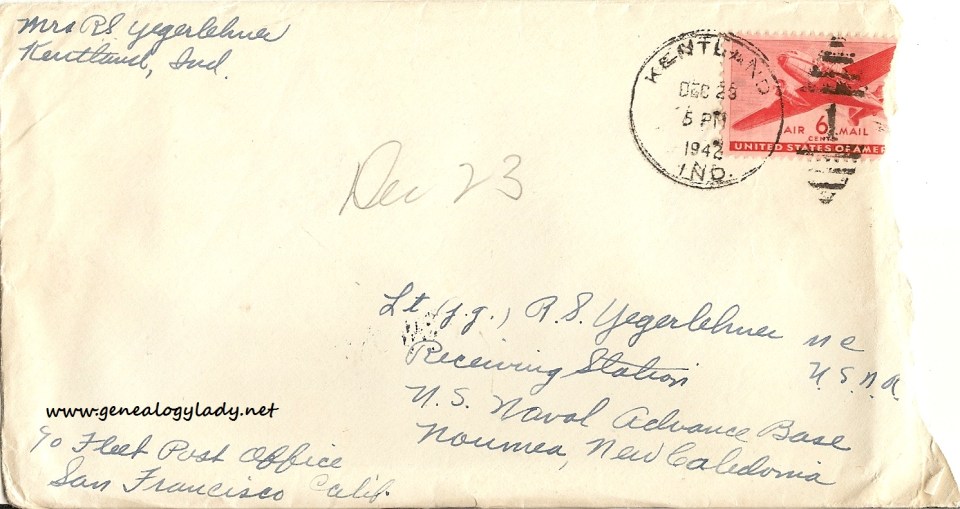 Mrs R.S. Yegerlehner
Kentland, Ind.
KENTLAND
DEC 23
5 PM
1942
IND.
AIR 6 MAIL
CENTS
UNITED STATES OF AMER
Dec 23
Lt (j.g.) R.S. Yegerlehner
Receiving Station
U.S. Naval Advance Base
Noumea, New Caledonia
www.genealogylady.net
c/o Fleet Post Office
San Francisco Calif.